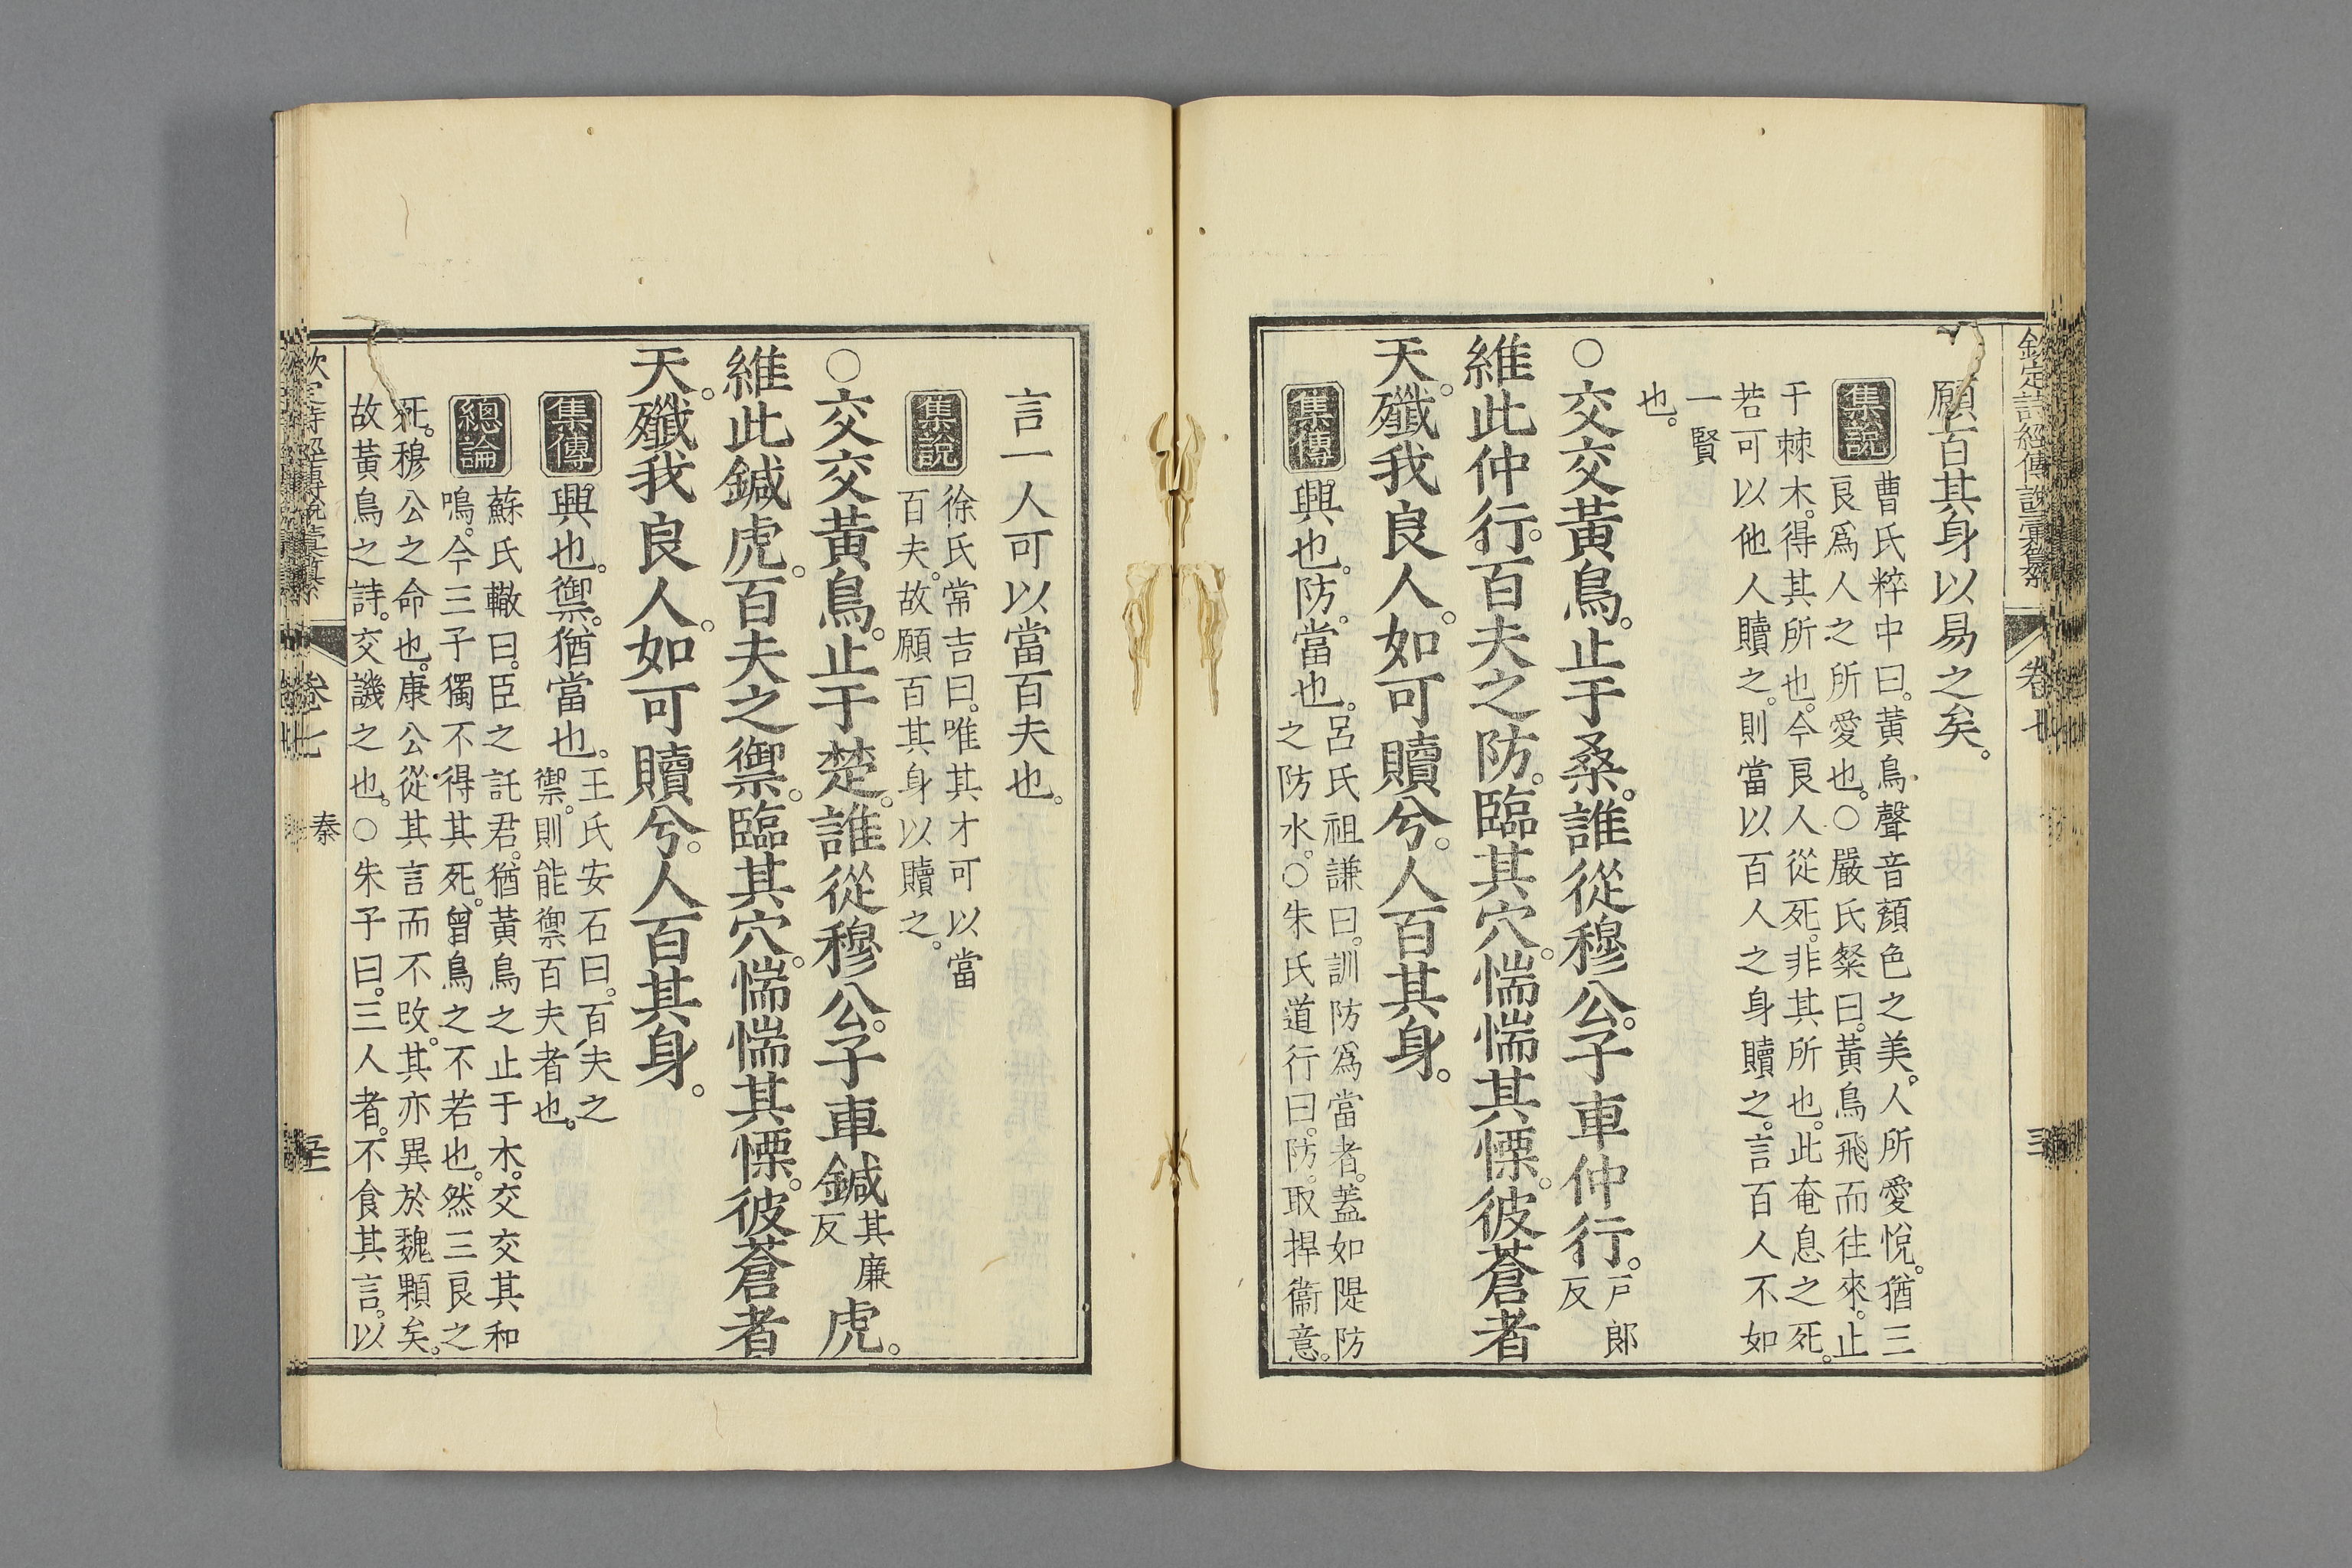 欽定詩經傳說彙纂 卷七
願百其身以易之矣。
集說 曹氏粹中曰。黃鳥聲音顏色之美。人所愛悅。猶三
良爲人之所愛也。○嚴氏粲曰。黃鳥飛而往來。止
于棘木。得其所也。今良人從死。非其所也。此奄息之死。
若可以他人贖之。則當以百人之身贖之。言百人不如
一賢
也。
○交交黃鳥。止于桑。誰從穆公。子車仲行。戶郎反
維此仲行。百夫之防。臨其穴。惴惴其慄。彼蒼者
天。殲我良人。如可贖兮。人百其身。
集傳 興也。防。當也。呂氏祖謙曰。訓防爲當者。蓋如隄防
之防水。○朱氏道行曰。防。取捍衞意。
言一人可以當百夫也。
集說 徐氏常吉曰。唯其才可以當
百夫。故願百其身以贖之。
○交交黃鳥。止于楚。誰從穆公。子車鍼其廉反虎。
維此鍼虎。百夫之禦。臨其穴。惴惴其慄。彼蒼者
天。殲我良人。如可贖兮。人百其身。
集傳 興也。禦。猶當也。王氏安石曰。百夫之
禦。則能禦百夫者也。
總論 蘇氏轍曰。臣之託君。猶黃鳥之止于木。交交其和
鳴。今三子獨不得其死。曾鳥之不若也。然三良之
死。穆公之命也。康公從其言而不改。其亦異於魏顆矣。
故黃鳥之詩。交譏之也。○朱子曰。三人者。不食其言。以
欽定詩經傳說彙纂 卷七 秦